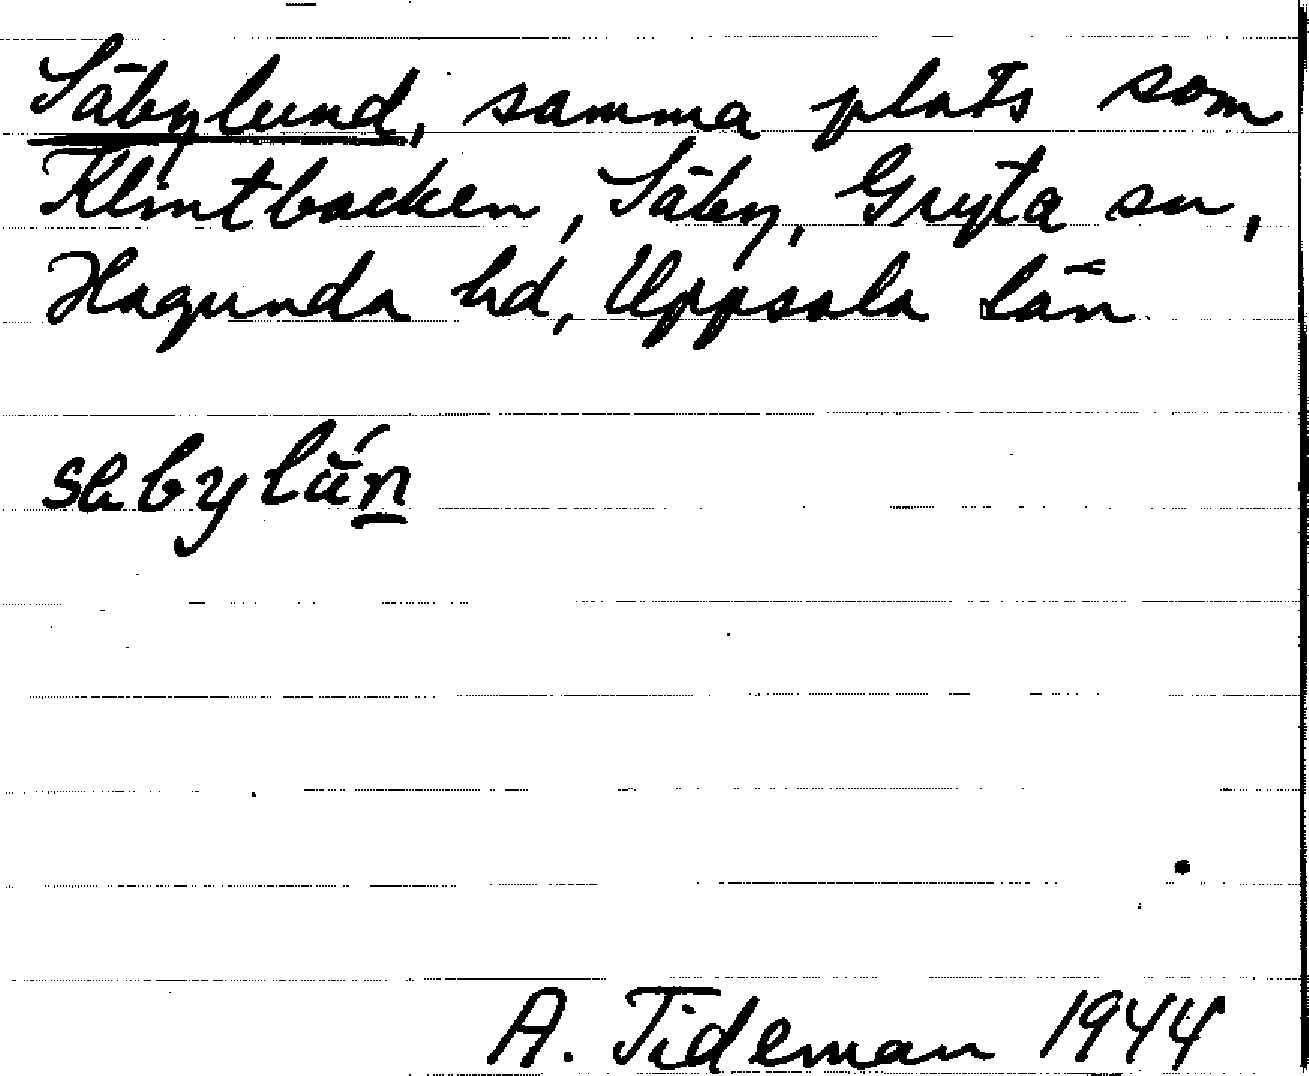 Säbylund, samma plats som
Klintbacken, Säby, Gryta sn,
Hagunda hd, Uppsala län
A. Tideman 1944